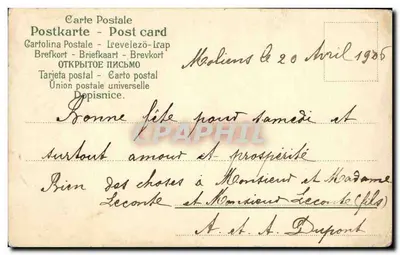 Carte Postale
Postkarte - Post card
Cartolina Postale - Levelező-Lap
Brefkort - Briefkaart - Brevkort
ОТКРЫТОЕ ПИСЬМО
Tarjeta postal - Carto postal
Union postale universelle
Dopisnice.
Moliens le 20 Avril 1906
Bonne fête pour samedi et
surtout amour et prospérité
Bien des choses à Monsieur et Madame
Leconte et Monsieur Leconte (fils)
A. et A. Dupont